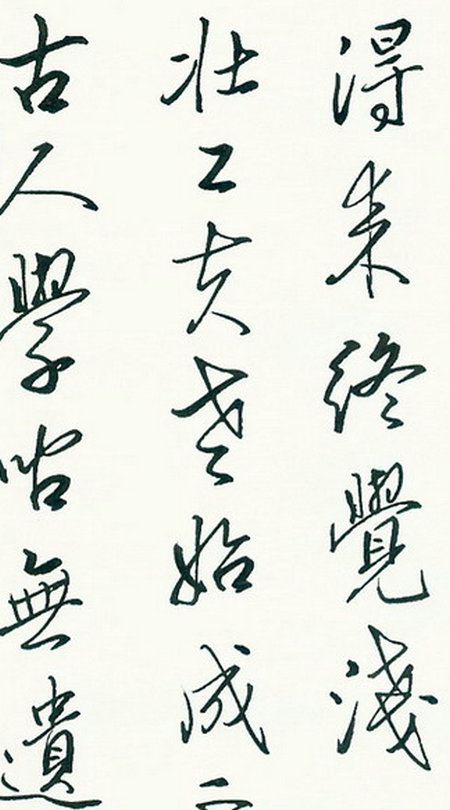 古人學問無遺
壯工夫老始成
得來終覺淺